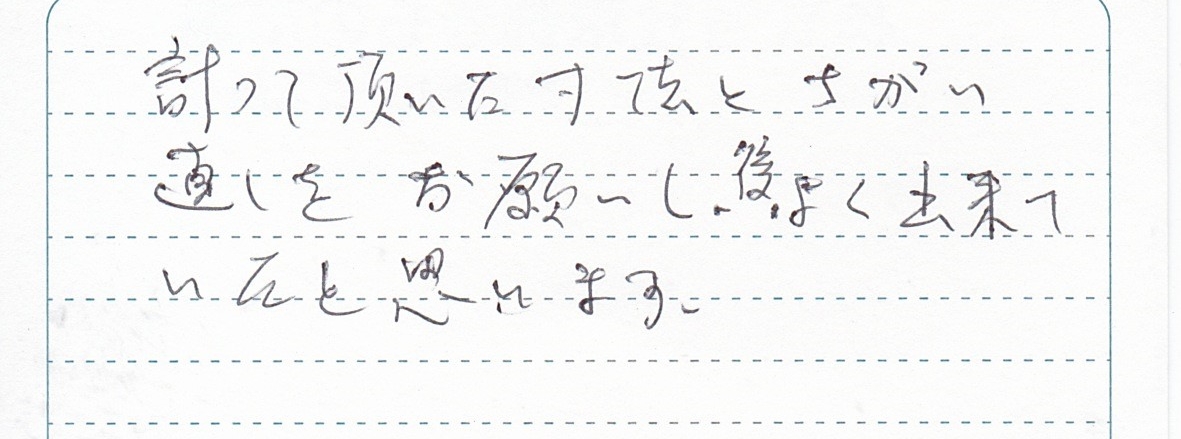 計って頂いた寸法とちがい
直しをお願いし、後、よく出来て
いたと思います。